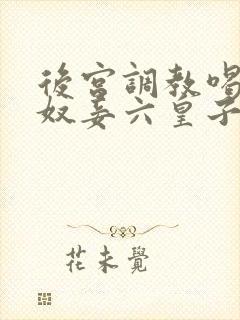 後宮調教唱
奴妾六皇子
花未覺